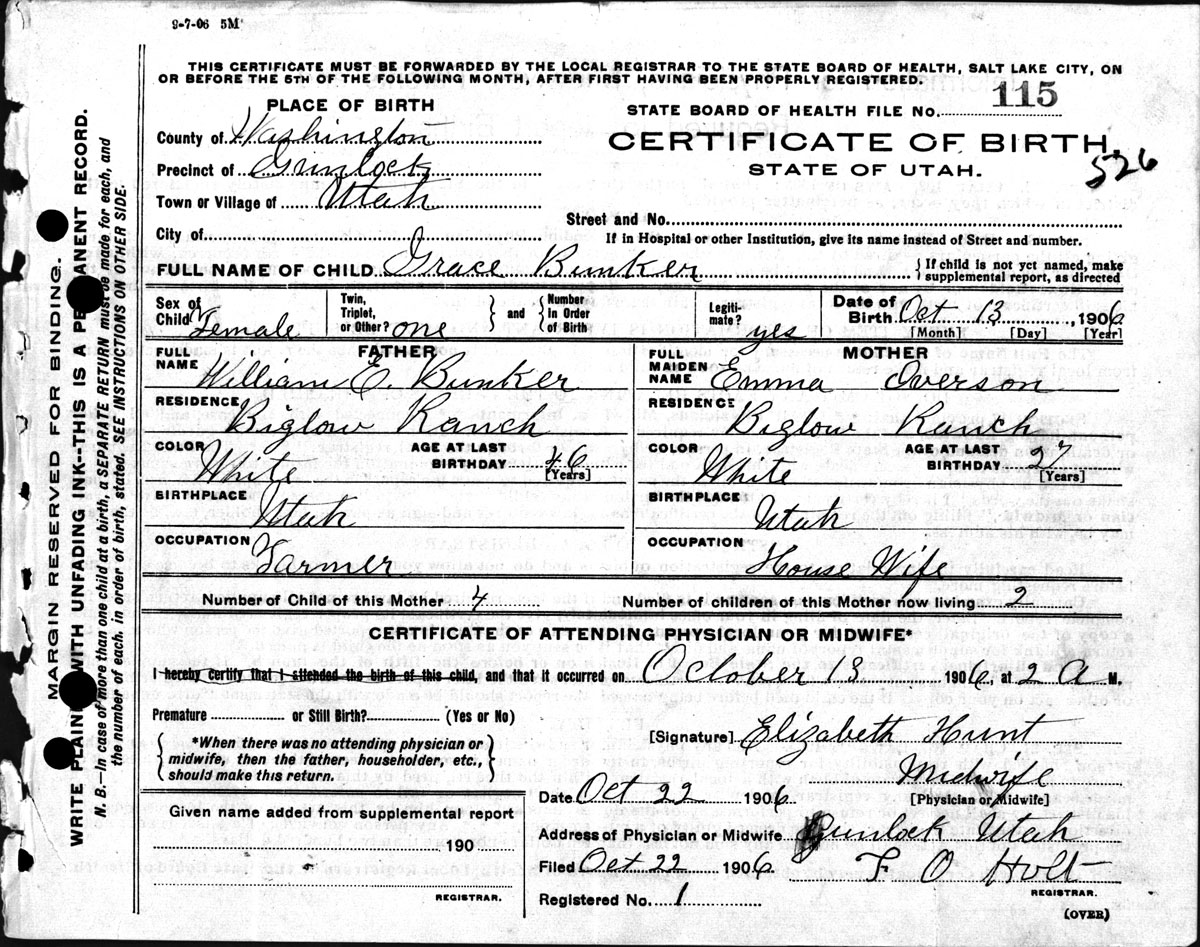 9-7-06 5M
THIS CERTIFICATE MUST BE FORWARDED BY THE LOCAL REGISTRAR TO THE STATE BOARD OF HEALTH, SALT LAKE CITY, ON
OR BEFORE THE 5TH OF THE FOLLOWING MONTH, AFTER FIRST HAVING BEEN PROPERLY REGISTERED.
PLACE OF BIRTH
STATE BOARD OF HEALTH FILE No. 115
County of Washington
CERTIFICATE OF BIRTH.
Precinct of Gunlock
STATE OF UTAH.
526
Town or Village of Utah
Street and No.
City of
If in Hospital or other Institution, give its name instead of Street and number.
FULL NAME OF CHILD Grace Bunker { If child is not yet named, make
supplemental report, as directed
Sex of Child Female
Twin, Triplet, or Other? one
and
Number In Order of Birth
Legiti- mate? yes
Date of Birth Oct 13, 1906
[Month] [Day] [Year]
FATHER
FULL NAME William E. Bunker
RESIDENCE Biglow Ranch
COLOR White AGE AT LAST BIRTHDAY 46 [Years]
BIRTHPLACE Utah
OCCUPATION Farmer
MOTHER
FULL MAIDEN NAME Emma Overson
RESIDENCE Biglow Ranch
COLOR White AGE AT LAST BIRTHDAY 27 [Years]
BIRTHPLACE Utah
OCCUPATION House Wife
Number of Child of this Mother 4 Number of children of this Mother now living 2
CERTIFICATE OF ATTENDING PHYSICIAN OR MIDWIFE*
I hereby certify that I attended the birth of this child, and that it occurred on October 13 1906, at 2 A M.
Premature or Still Birth? (Yes or No)
{ *When there was no attending physician or
midwife, then the father, householder, etc.,
should make this return. }
[Signature] Elizabeth Hunt
Midwife
[Physician or Midwife]
Date Oct 22 1906
Given name added from supplemental report
190
REGISTRAR.
Address of Physician or Midwife Gunlock Utah
Filed Oct 22 1906 F O Holt
REGISTRAR.
Registered No. 1
(OVER)
MARGIN RESERVED FOR BINDING.
WRITE PLAINLY WITH UNFADING INK--THIS IS A PERMANENT RECORD.
N. B.--In case of more than one child at a birth, a SEPARATE RETURN must be made for each, and
the number of each, in order of birth, stated. SEE INSTRUCTIONS ON OTHER SIDE.